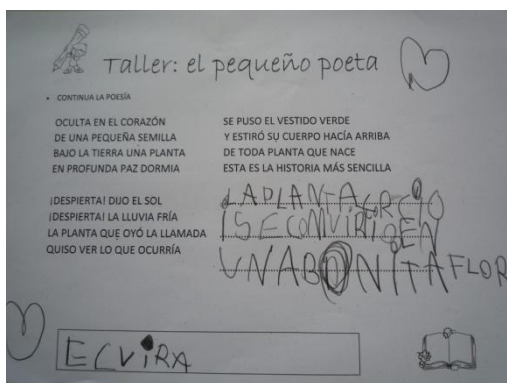 Taller: el pequeño poeta
CONTINUA LA POESÍA
OCULTA EN EL CORAZÓN
DE UNA PEQUEÑA SEMILLA
BAJO LA TIERRA UNA PLANTA
EN PROFUNDA PAZ DORMIA
¡DESPIERTA! DIJO EL SOL
¡DESPIERTA! LA LLUVIA FRÍA
LA PLANTA QUE OYÓ LA LLAMADA
QUISO VER LO QUE OCURRÍA
SE PUSO EL VESTIDO VERDE
Y ESTIRÓ SU CUERPO HACÍA ARRIBA
DE TODA PLANTA QUE NACE
ESTA ES LA HISTORIA MÁS SENCILLA
LA PLANTA
I SE
UNA BONITA FLOR
ELVIRA